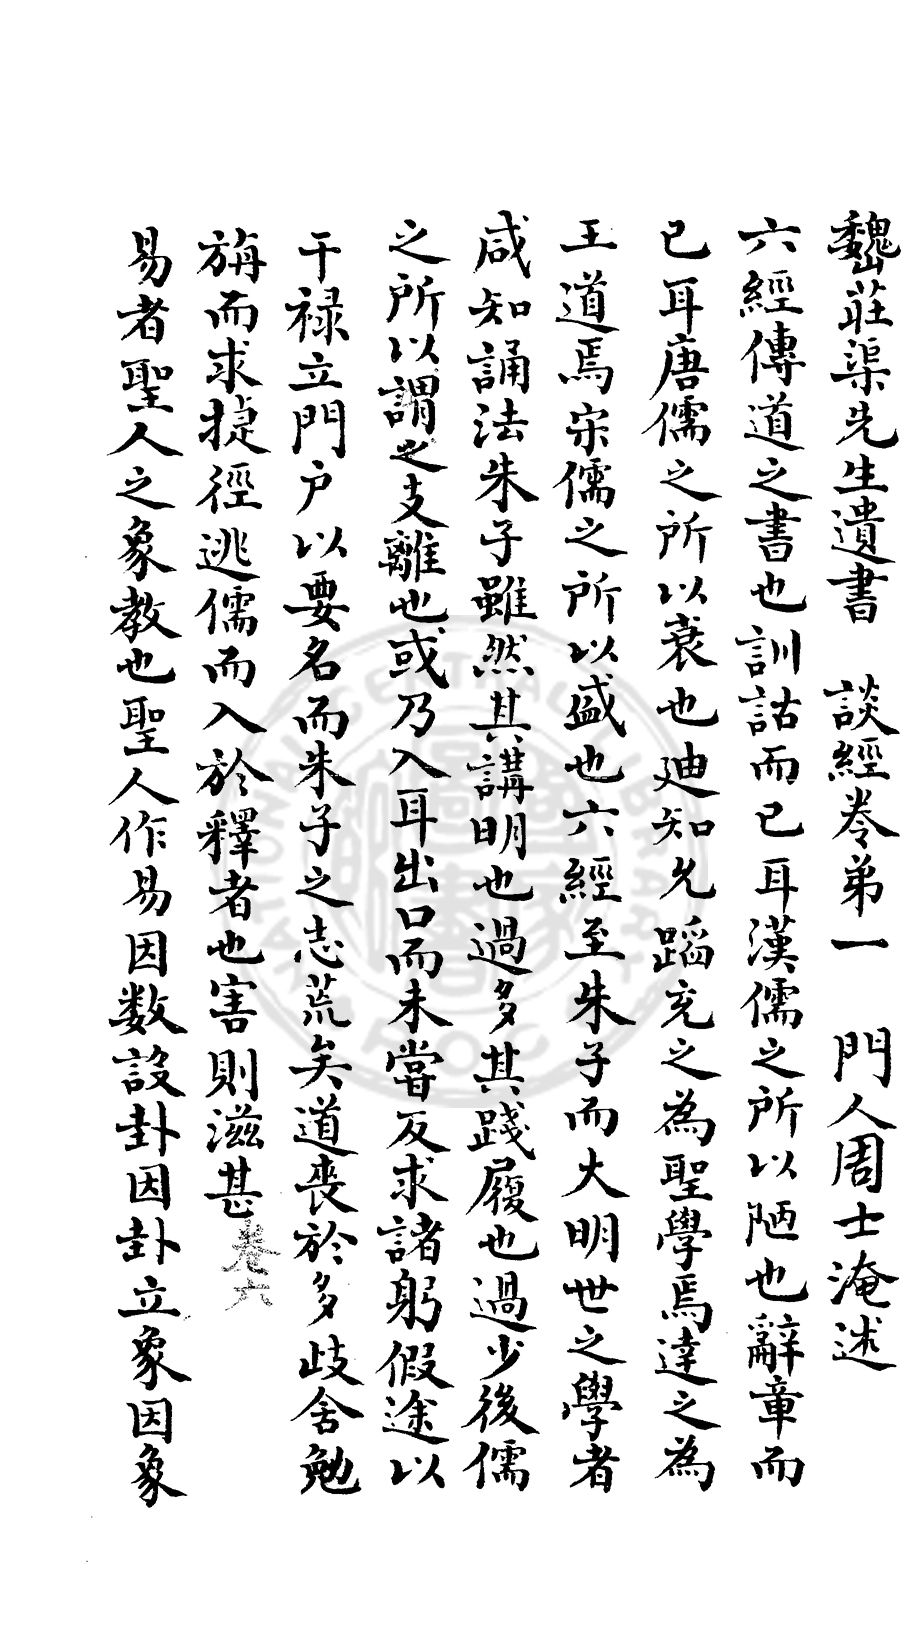 魏莊渠先生遺書　談經卷第一　門人周士淹述
六經傳道之書也訓詁而已耳漢儒之所以陋也辭章而
已耳唐儒之所以衰也廸知允蹈充之為聖學焉達之為
王道焉宋儒之所以盛也六經至朱子而大明世之學者
咸知誦法朱子雖然其講明也過多其踐履也過少後儒
之所以謂之支離也或乃入耳出口而未嘗反求諸躬假途以
干祿立門户以要名而朱子之志荒矣道喪於多歧舍勉
旃而求捷徑逃儒而入於釋者也害則滋甚卷六
易者聖人之象教也聖人作易因数設卦因卦立象因象